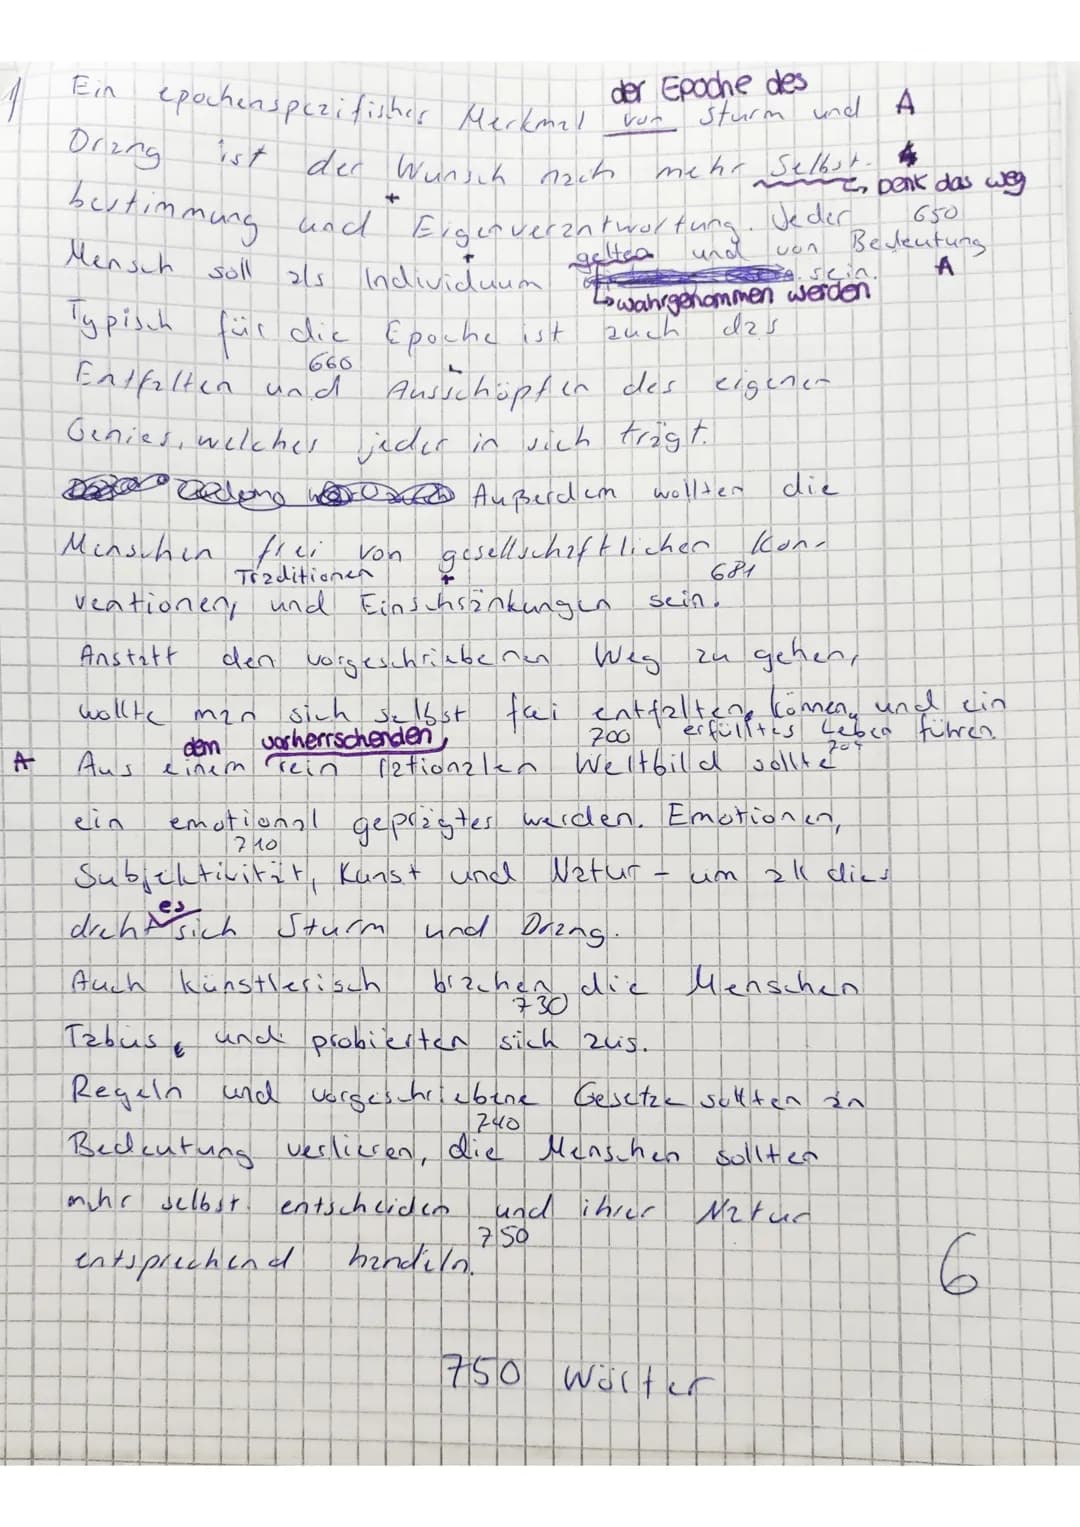 der Epoche des
1 Ein epochenspezifisches Merkmal von Sturm und A
Drang ist der Wunsch nach mehr Selbst-
↳ Denk das weg
bestimmung und Eigenverantwortung. Jeder 650
gelten und von Bedeutung
Mensch soll als Individuum sein. A
↳ wahrgenommen werden
Typisch für die Epoche ist auch das
660
Entfalten und Ausschöpfen des eigenen
Genies, welches jeder in sich trägt.
Außerdem wollten die
Menschen frei von gesellschaftlichen Kon-
Traditionen 681
ventionen, und Einschränkungen sein.
Anstatt den vorgeschriebenen Weg zu gehen,
wollte man sich selbst frei entfalten können und ein
700 erfülltes Leben führen.
dem vorherrschenden, 704
A Aus einem rein rationalen Weltbild sollte
ein emotional geprägtes werden. Emotionen,
710
Subjektivität, Kunst und Natur - um all dies
es
dreht sich Sturm und Drang.
Auch künstlerisch brachen die Menschen
730
Tabus und probierten sich aus.
Regeln und vorgeschriebene Gesetze sollten an
740
Bedeutung verlieren, die Menschen sollten
mehr selbst entscheiden und ihrer Natur
750
entsprechend handeln.
6
750 Wörter